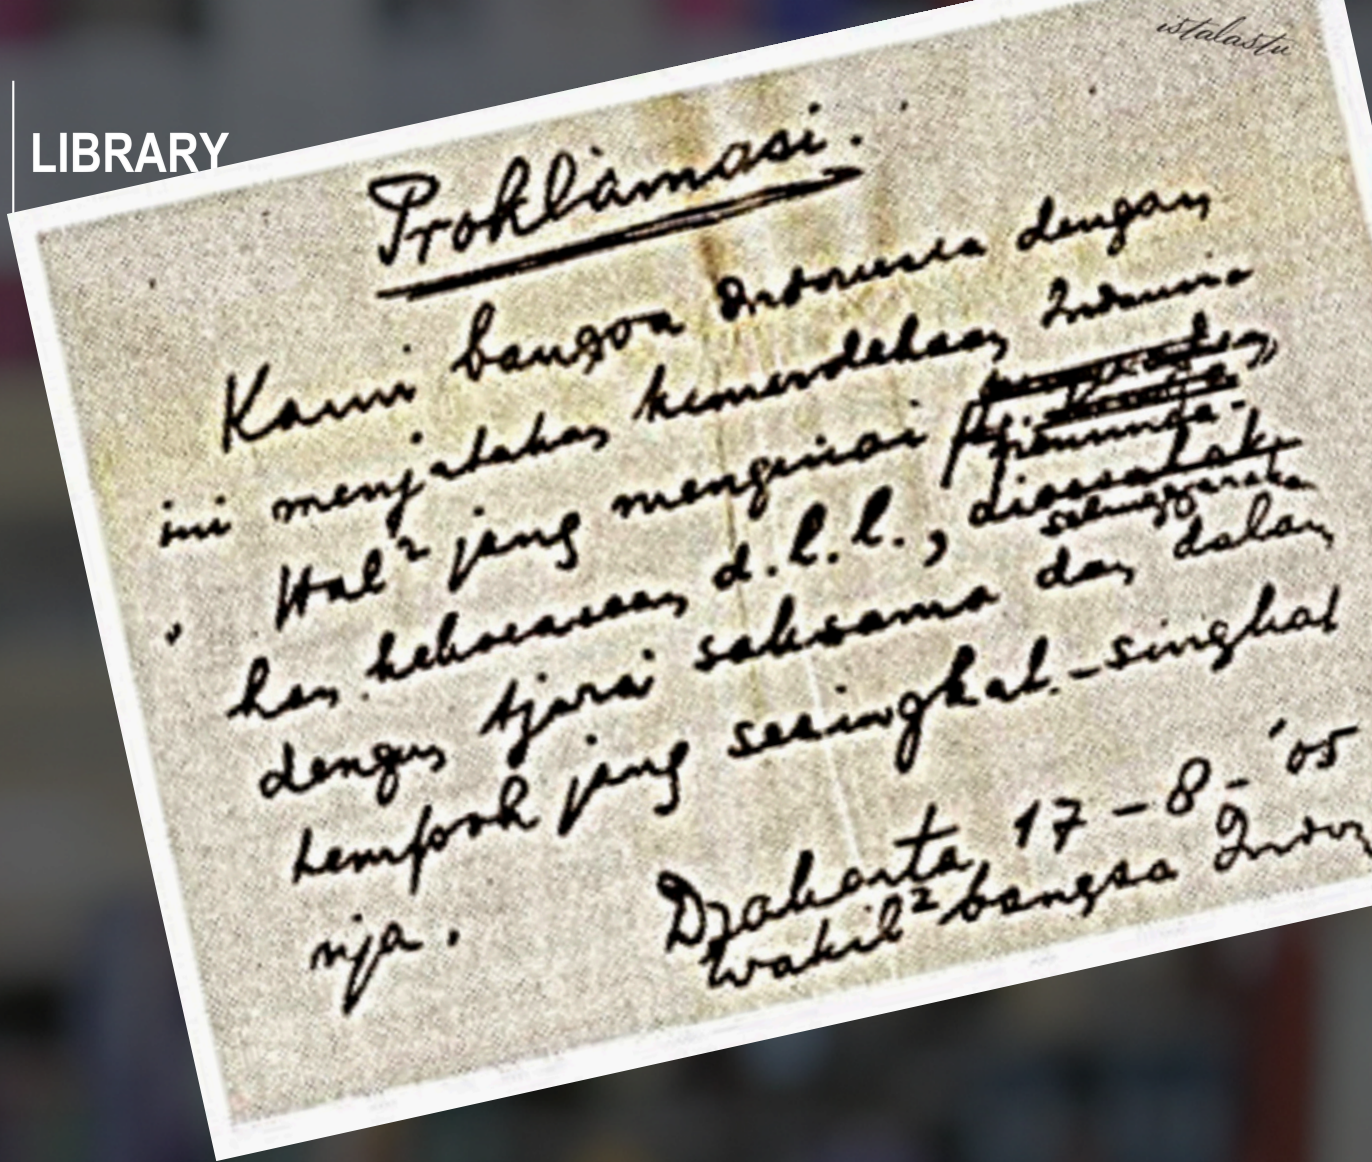 LIBRARY
istalastu
Proklamasi.
Kami bangsa Indonesia dengan
ini menjatakan kemerdekaan Indonesia.
Hal² jang mengenai pemindahan
kekoeasaan d.l.l., diselenggarakan
dengan tjara saksama dan dalam
tempoh jang sesingkat-singkat
nja.
Djakarta, 17-8-'05
Wakil² bangsa Indon